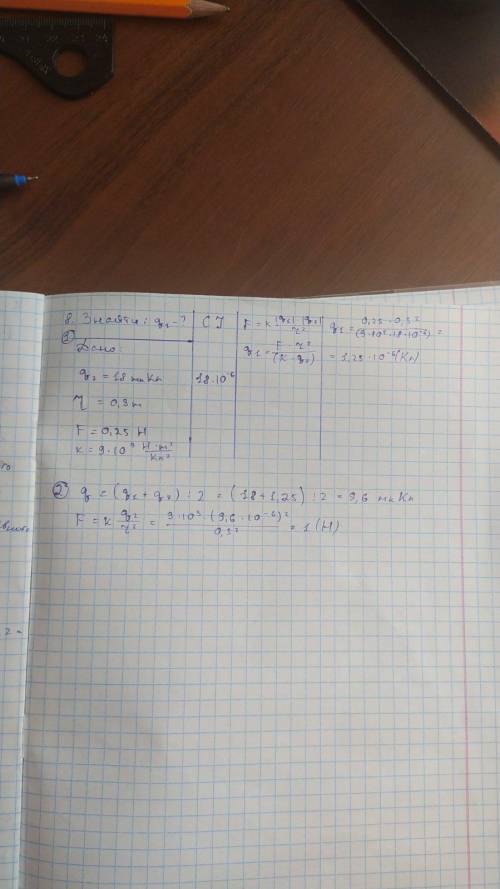 8. Знайти: q₁-? СІ
① Дано:
q₂ = 18 мкКл 18·10⁻⁶
r = 0,3 m
F = 0,25 Н
к = 9·10⁹ Н·m²/Кл²
F = к |q₁|·|q₂|/r²
q₁ = F·r²/(к·q₂)
q₁ = 0,25·0,3²/(9·10⁹·18·10⁻⁶) =
= 1,25·10⁻⁶ (Кл)
② q = (q₁ + q₂) : 2 = (18 + 1,25) : 2 = 9,6 мкКл
F = к q²/r² = 9·10⁹·(9,6·10⁻⁶)²/0,3² = 1 (Н)